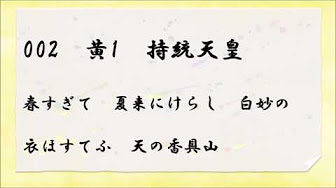 002　黄1　持統天皇
春すぎて　夏来にけらし　白妙の
衣ほすてふ　天の香具山